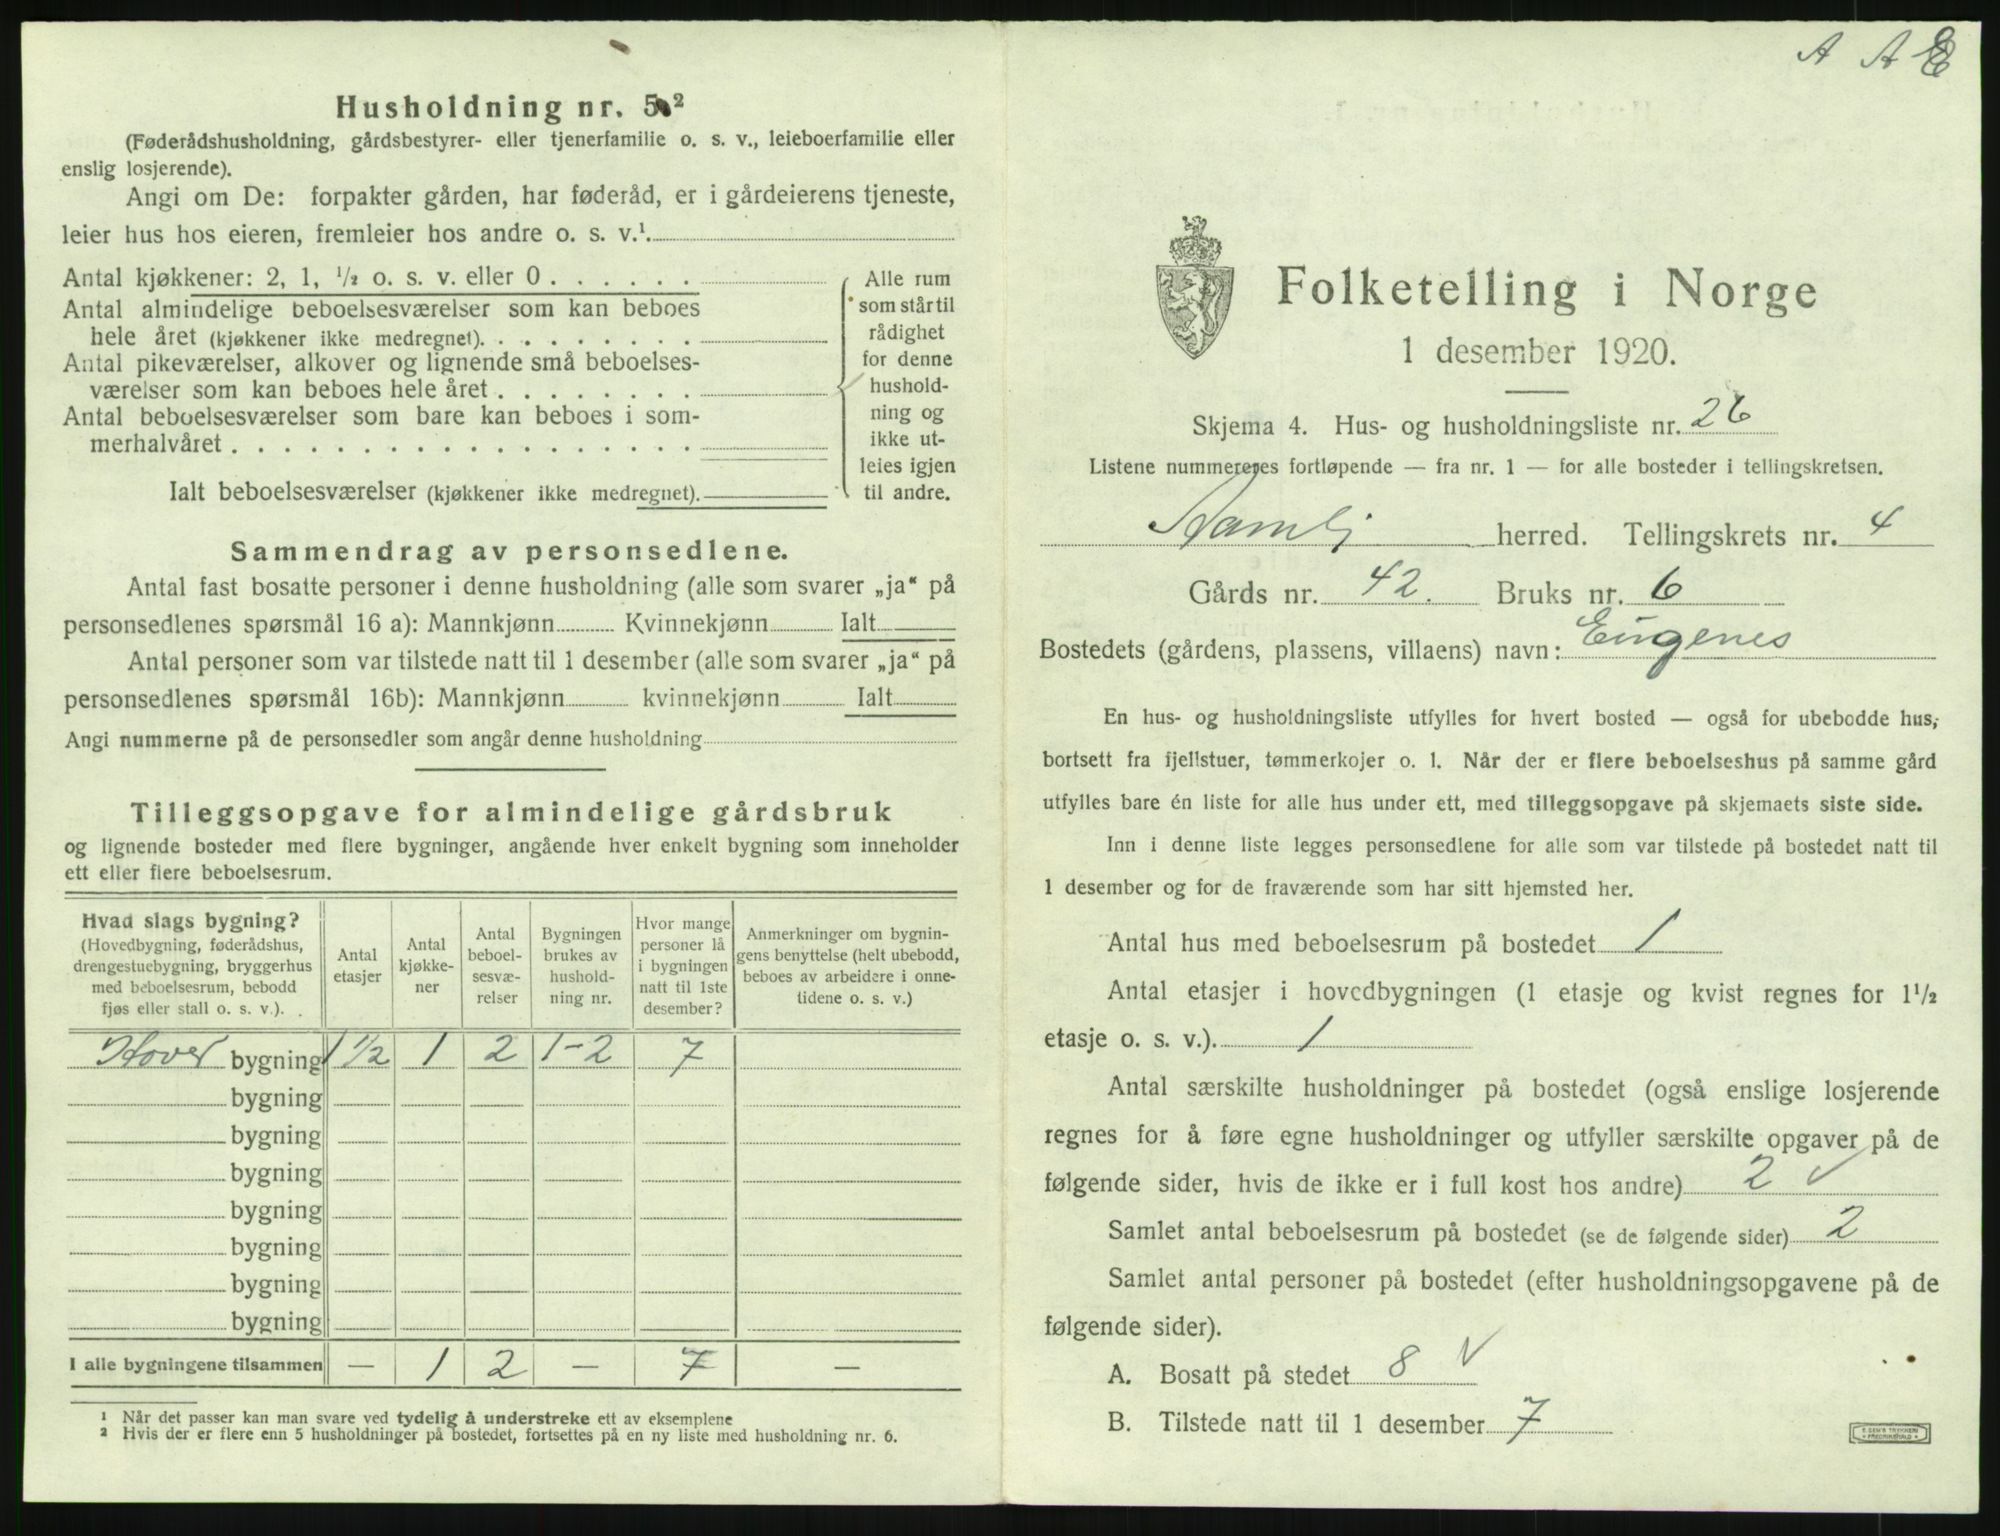 Husholdning nr. 5.²
(Føderådshusholdning, gårdsbestyrer- eller tjenerfamilie o. s. v., leieboerfamilie eller
enslig losjerende).
Angi om De: forpakter gården, har føderåd, er i gårdeierens tjeneste,
leier hus hos eieren, fremleier hos andre o. s. v.¹
Antal kjøkkener: 2, 1, ½ o. s. v. eller 0
Antal almindelige beboelsesværelser som kan beboes
hele året (kjøkkener ikke medregnet).
Antal pikeværelser, alkover og lignende små beboelses-
værelser som kan beboes hele året
Antal beboelsesværelser som bare kan beboes i som-
merhalvåret
Ialt beboelsesværelser (kjøkkener ikke medregnet).
Alle rum
som står til
rådighet
for denne
hushold-
ning og
ikke ut-
leies igjen
til andre.
Sammendrag av personsedlene.
Antal fast bosatte personer i denne husholdning (alle som svarer „ja“ på
personsedlenes spørsmål 16 a): Mannkjønn Kvinnekjønn Ialt
Antal personer som var tilstede natt til 1 desember (alle som svarer „ja“ på
personsedlenes spørsmål 16b): Mannkjønn kvinnekjønn Ialt
Angi nummerne på de personsedler som angår denne husholdning
Tilleggsopgave for almindelige gårdsbruk
og lignende bosteder med flere bygninger, angående hver enkelt bygning som inneholder
ett eller flere beboelsesrum.
Hvad slags bygning?
(Hovedbygning, føderådshus,
drengestuebygning, bryggerhus
med beboelsesrum, bebodd
fjøs eller stall o. s. v.).
Antal
etasjer
Antal
kjøkke-
ner
Antal
beboel-
sesvæ-
relser
Bygningen
brukes av
hushold-
ning nr.
Hvor mange
personer lå
i bygningen
natt til 1ste
desember?
Anmerkninger om bygnin-
gens benyttelse (helt ubebodd,
beboes av arbeidere i onne-
tidene o. s. v.)
Hoved bygning 1 ½ 1 2 1-2 7
bygning
bygning
bygning
bygning
bygning
bygning
bygning
I alle bygningene tilsammen — 1 2 — 7 —
¹ Når det passer kan man svare ved tydelig å understreke ett av eksemplene
² Hvis der er flere enn 5 husholdninger på bostedet, fortsettes på en ny liste med husholdning nr. 6.
A A E
Folketelling i Norge
1 desember 1920.
Skjema 4. Hus- og husholdningsliste nr. 26
Listene nummereres fortløpende — fra nr. 1 — for alle bosteder i tellingskretsen.
herred. Tellingskrets nr. 4
Gårds nr. 42. Bruks nr. 6
Bostedets (gårdens, plassens, villaens) navn: Eugenes
En hus- og husholdningsliste utfylles for hvert bosted — også for ubebodde hus,
bortsett fra fjellstuer, tømmerkojer o. l. Når der er flere beboelseshus på samme gård
utfylles bare én liste for alle hus under ett, med tilleggsopgave på skjemaets siste side.
Inn i denne liste legges personsedlene for alle som var tilstede på bostedet natt til
1 desember og for de fraværende som har sitt hjemsted her.
Antal hus med beboelsesrum på bostedet 1
Antal etasjer i hovedbygningen (1 etasje og kvist regnes for 1½
etasje o. s. v.). 1
Antal særskilte husholdninger på bostedet (også enslige losjerende
regnes for å føre egne husholdninger og utfyller særskilte opgaver på de
følgende sider, hvis de ikke er i full kost hos andre) 2 ✓
Samlet antal beboelsesrum på bostedet (se de følgende sider) 2
Samlet antal personer på bostedet (efter husholdningsopgavene på de
følgende sider).
A. Bosatt på stedet 8 ✓
B. Tilstede natt til 1 desember 7